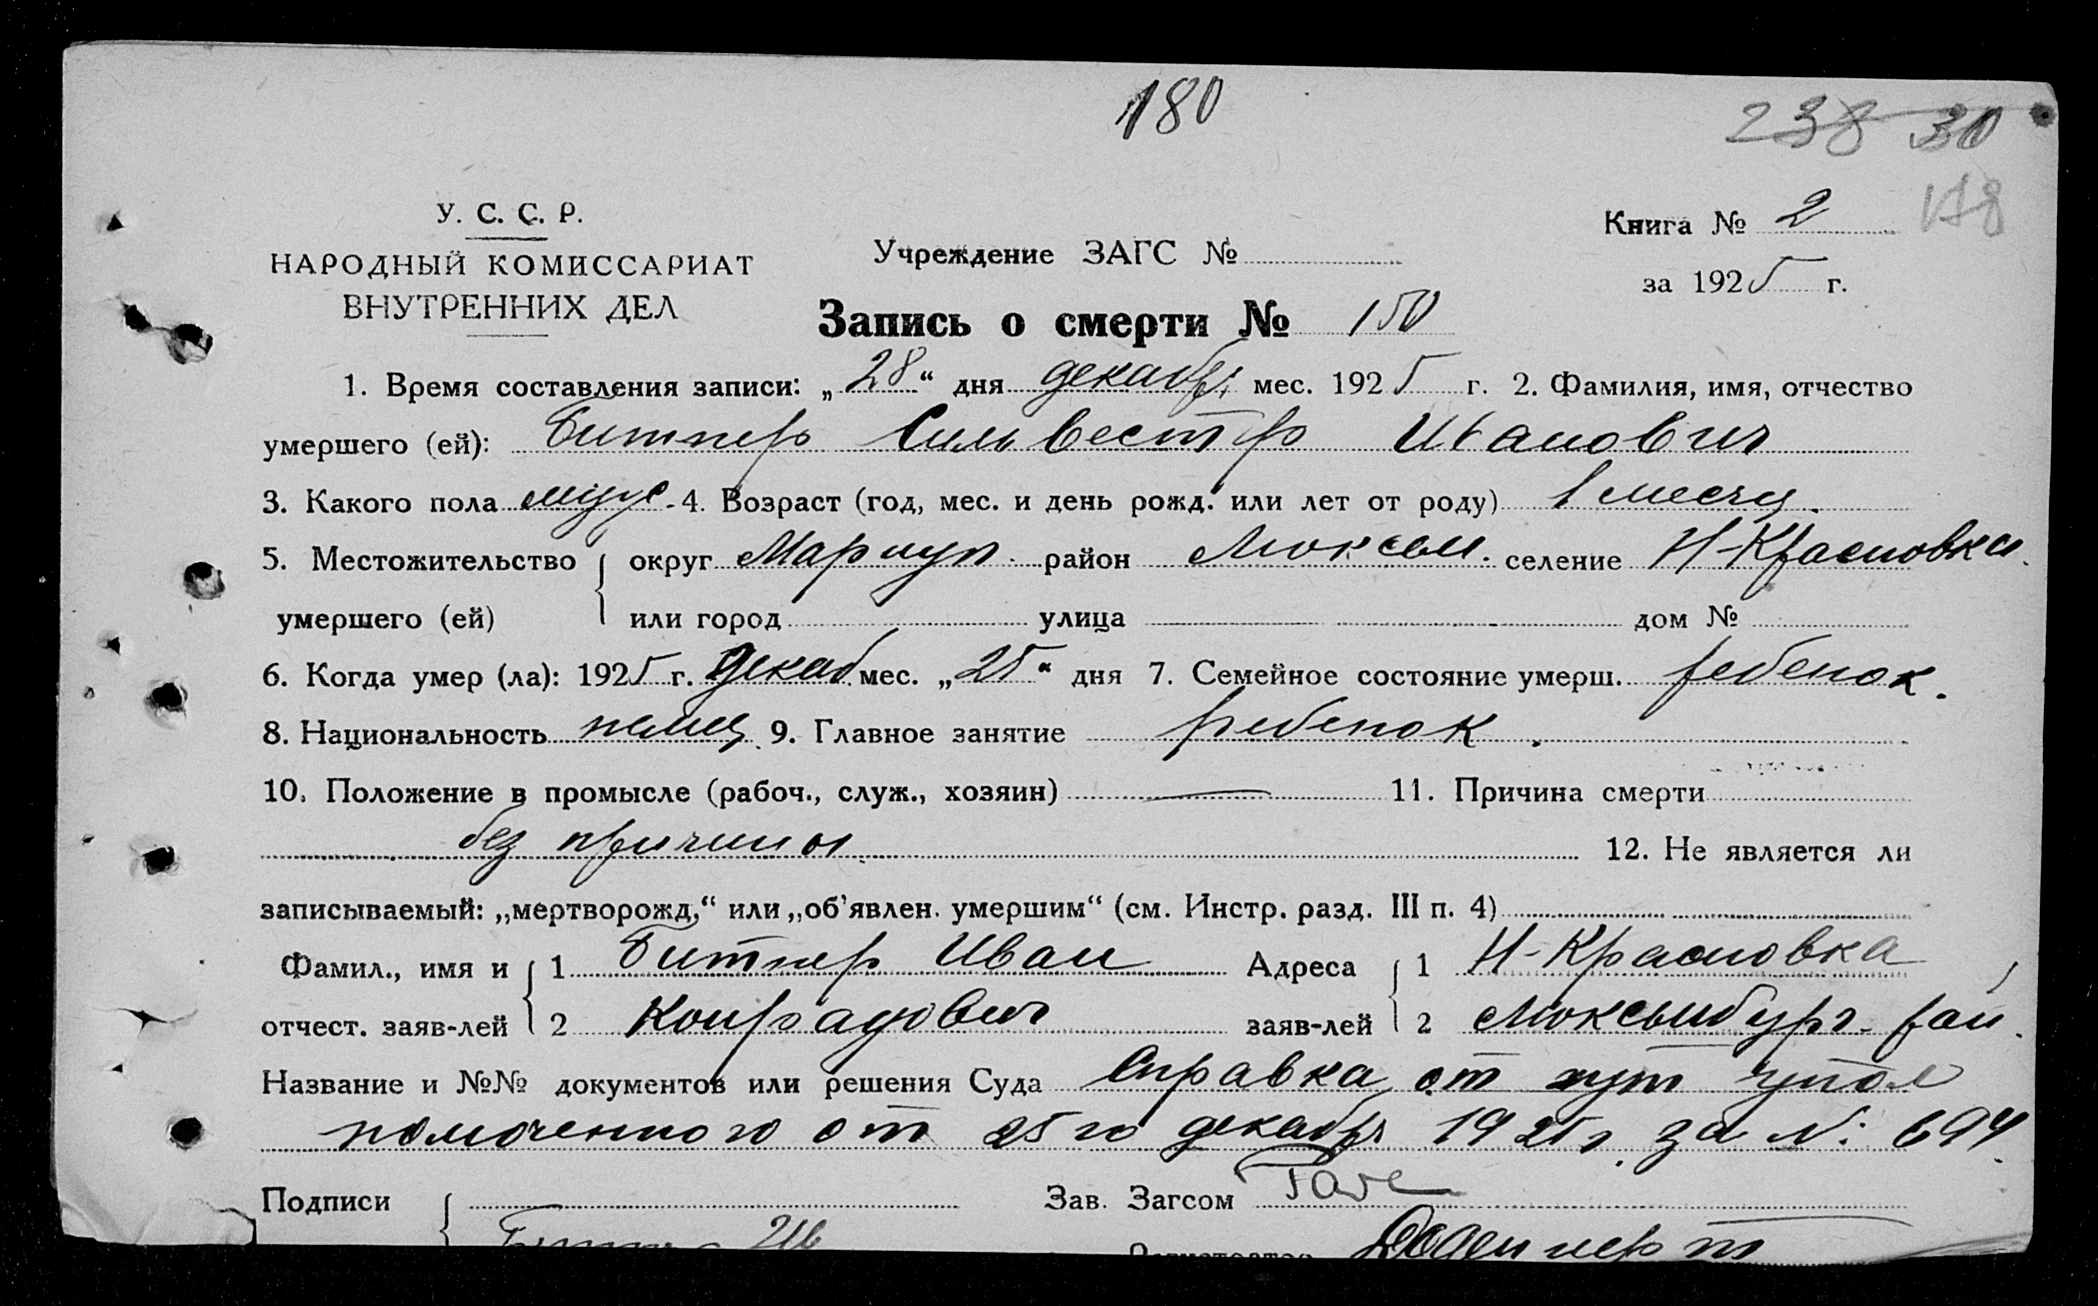 180
238 30
178
У. С. С. Р.
НАРОДНЫЙ КОМИССАРИАТ
ВНУТРЕННИХ ДЕЛ
Учреждение ЗАГС №
Книга № 2
за 1925 г.
Запись о смерти № 150
1. Время составления записи: „28“ дня декабр. мес. 1925 г. 2. Фамилия, имя, отчество
умершего (ей): Битнер Сильвестр Иванович
3. Какого пола муж. 4. Возраст (год, мес. и день рожд. или лет от роду) 1 месяц.
5. Местожительство умершего (ей) { округ Мариуп. район Люксем. селение Н-Красновка.
или город улица дом №
6. Когда умер (ла): 1925 г. Декаб. мес. „25“ дня 7. Семейное состояние умерш. ребенок.
8. Национальность немец. 9. Главное занятие ребенок.
10. Положение в промысле (рабоч., служ., хозяин) — 11. Причина смерти
без причины. 12. Не является ли
записываемый: „мертворожд,“ или „об’явлен. умершим“ (см. Инстр. разд. III п. 4)
Фамил., имя и отчест. заяв-лей { 1 Битнер Иван Адреса заяв-лей { 1 Н-Красновка,
2 Конрадович 2 Люксембург. рай.
Название и №№ документов или решения Суда Справка от хут упол
номоченного от 25го декабря 1925 г. за №: 694.
Подписи { Зав. Загсом
Битнер Ив